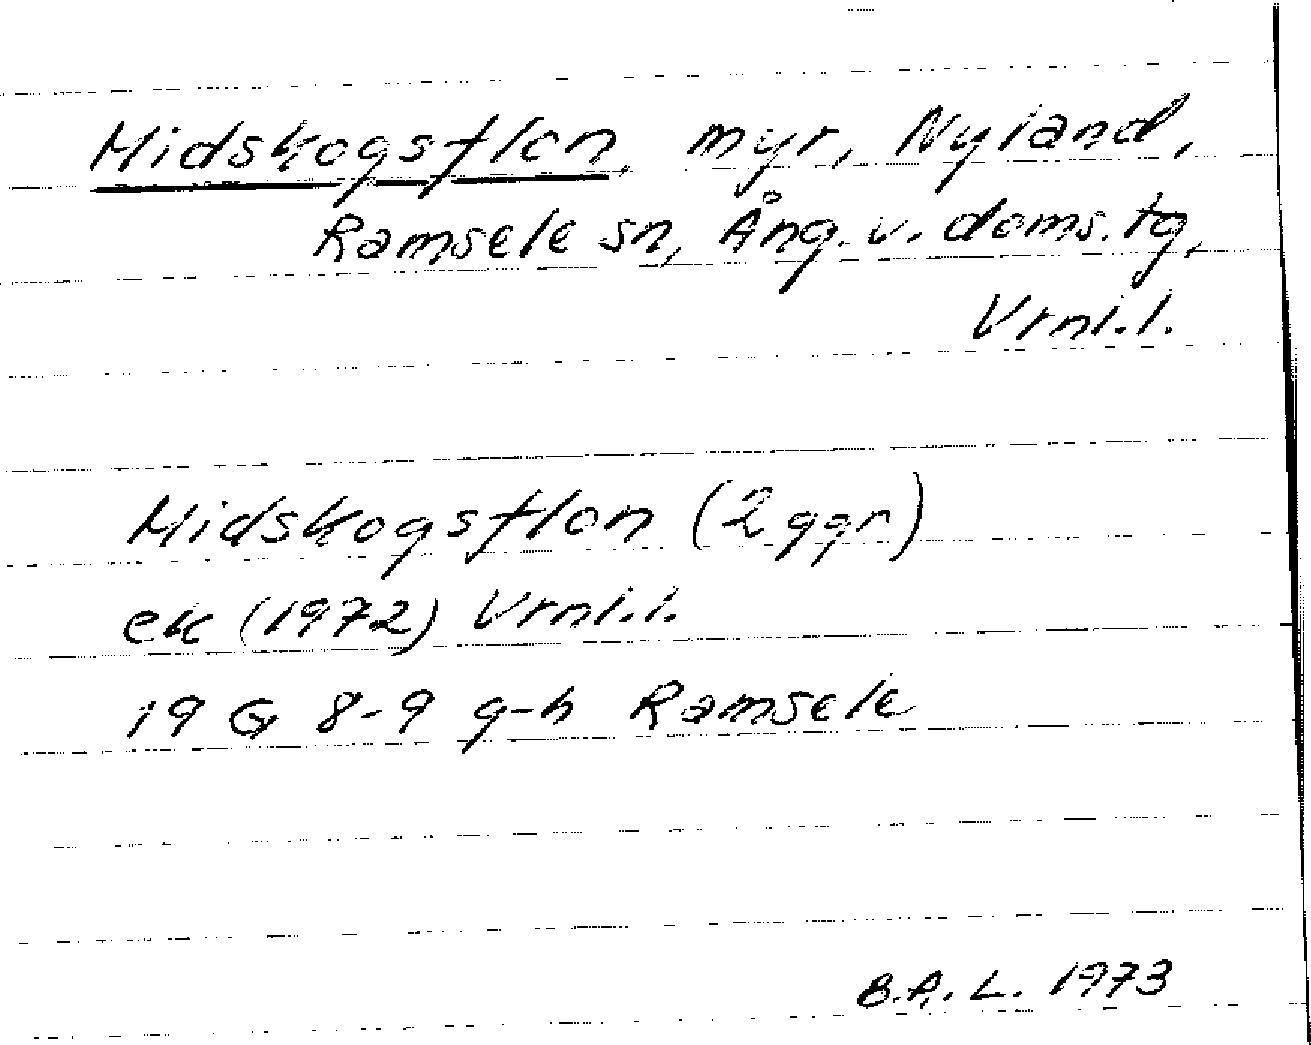 Midskogsflon, myr, Nyland,
Ramsele sn, Ång. v. doms. tg,
Vrnl.l.
Midskogsflon (2 ggr)
ek (1972) Vrnl.l.
19 G 8-9 g-h Ramsele
B.A.L. 1973